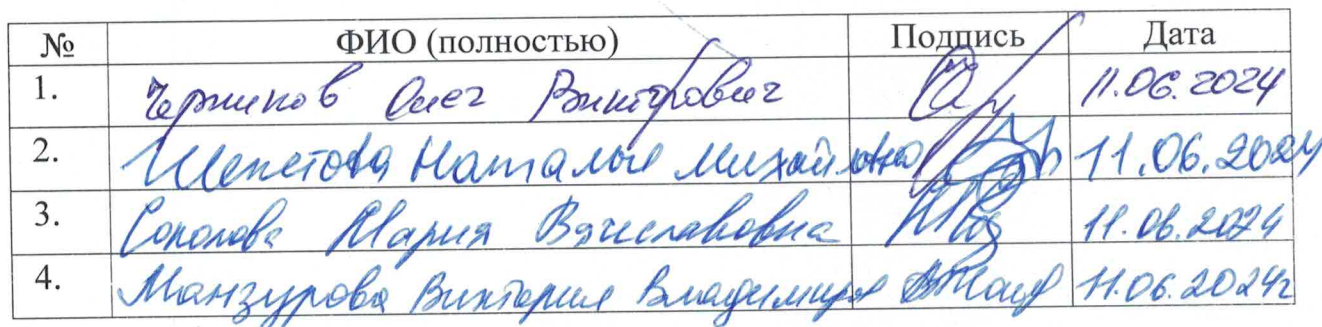 № ФИО (полностью) Подпись Дата
1. Олег Викторович 11.06.2024
2. Шепетова Наталья Михайловна 11.06.2024
3. Соколова Мария Вячеславовна 11.06.2024
4. Манзурова Виктория Владимир 11.06.2024г